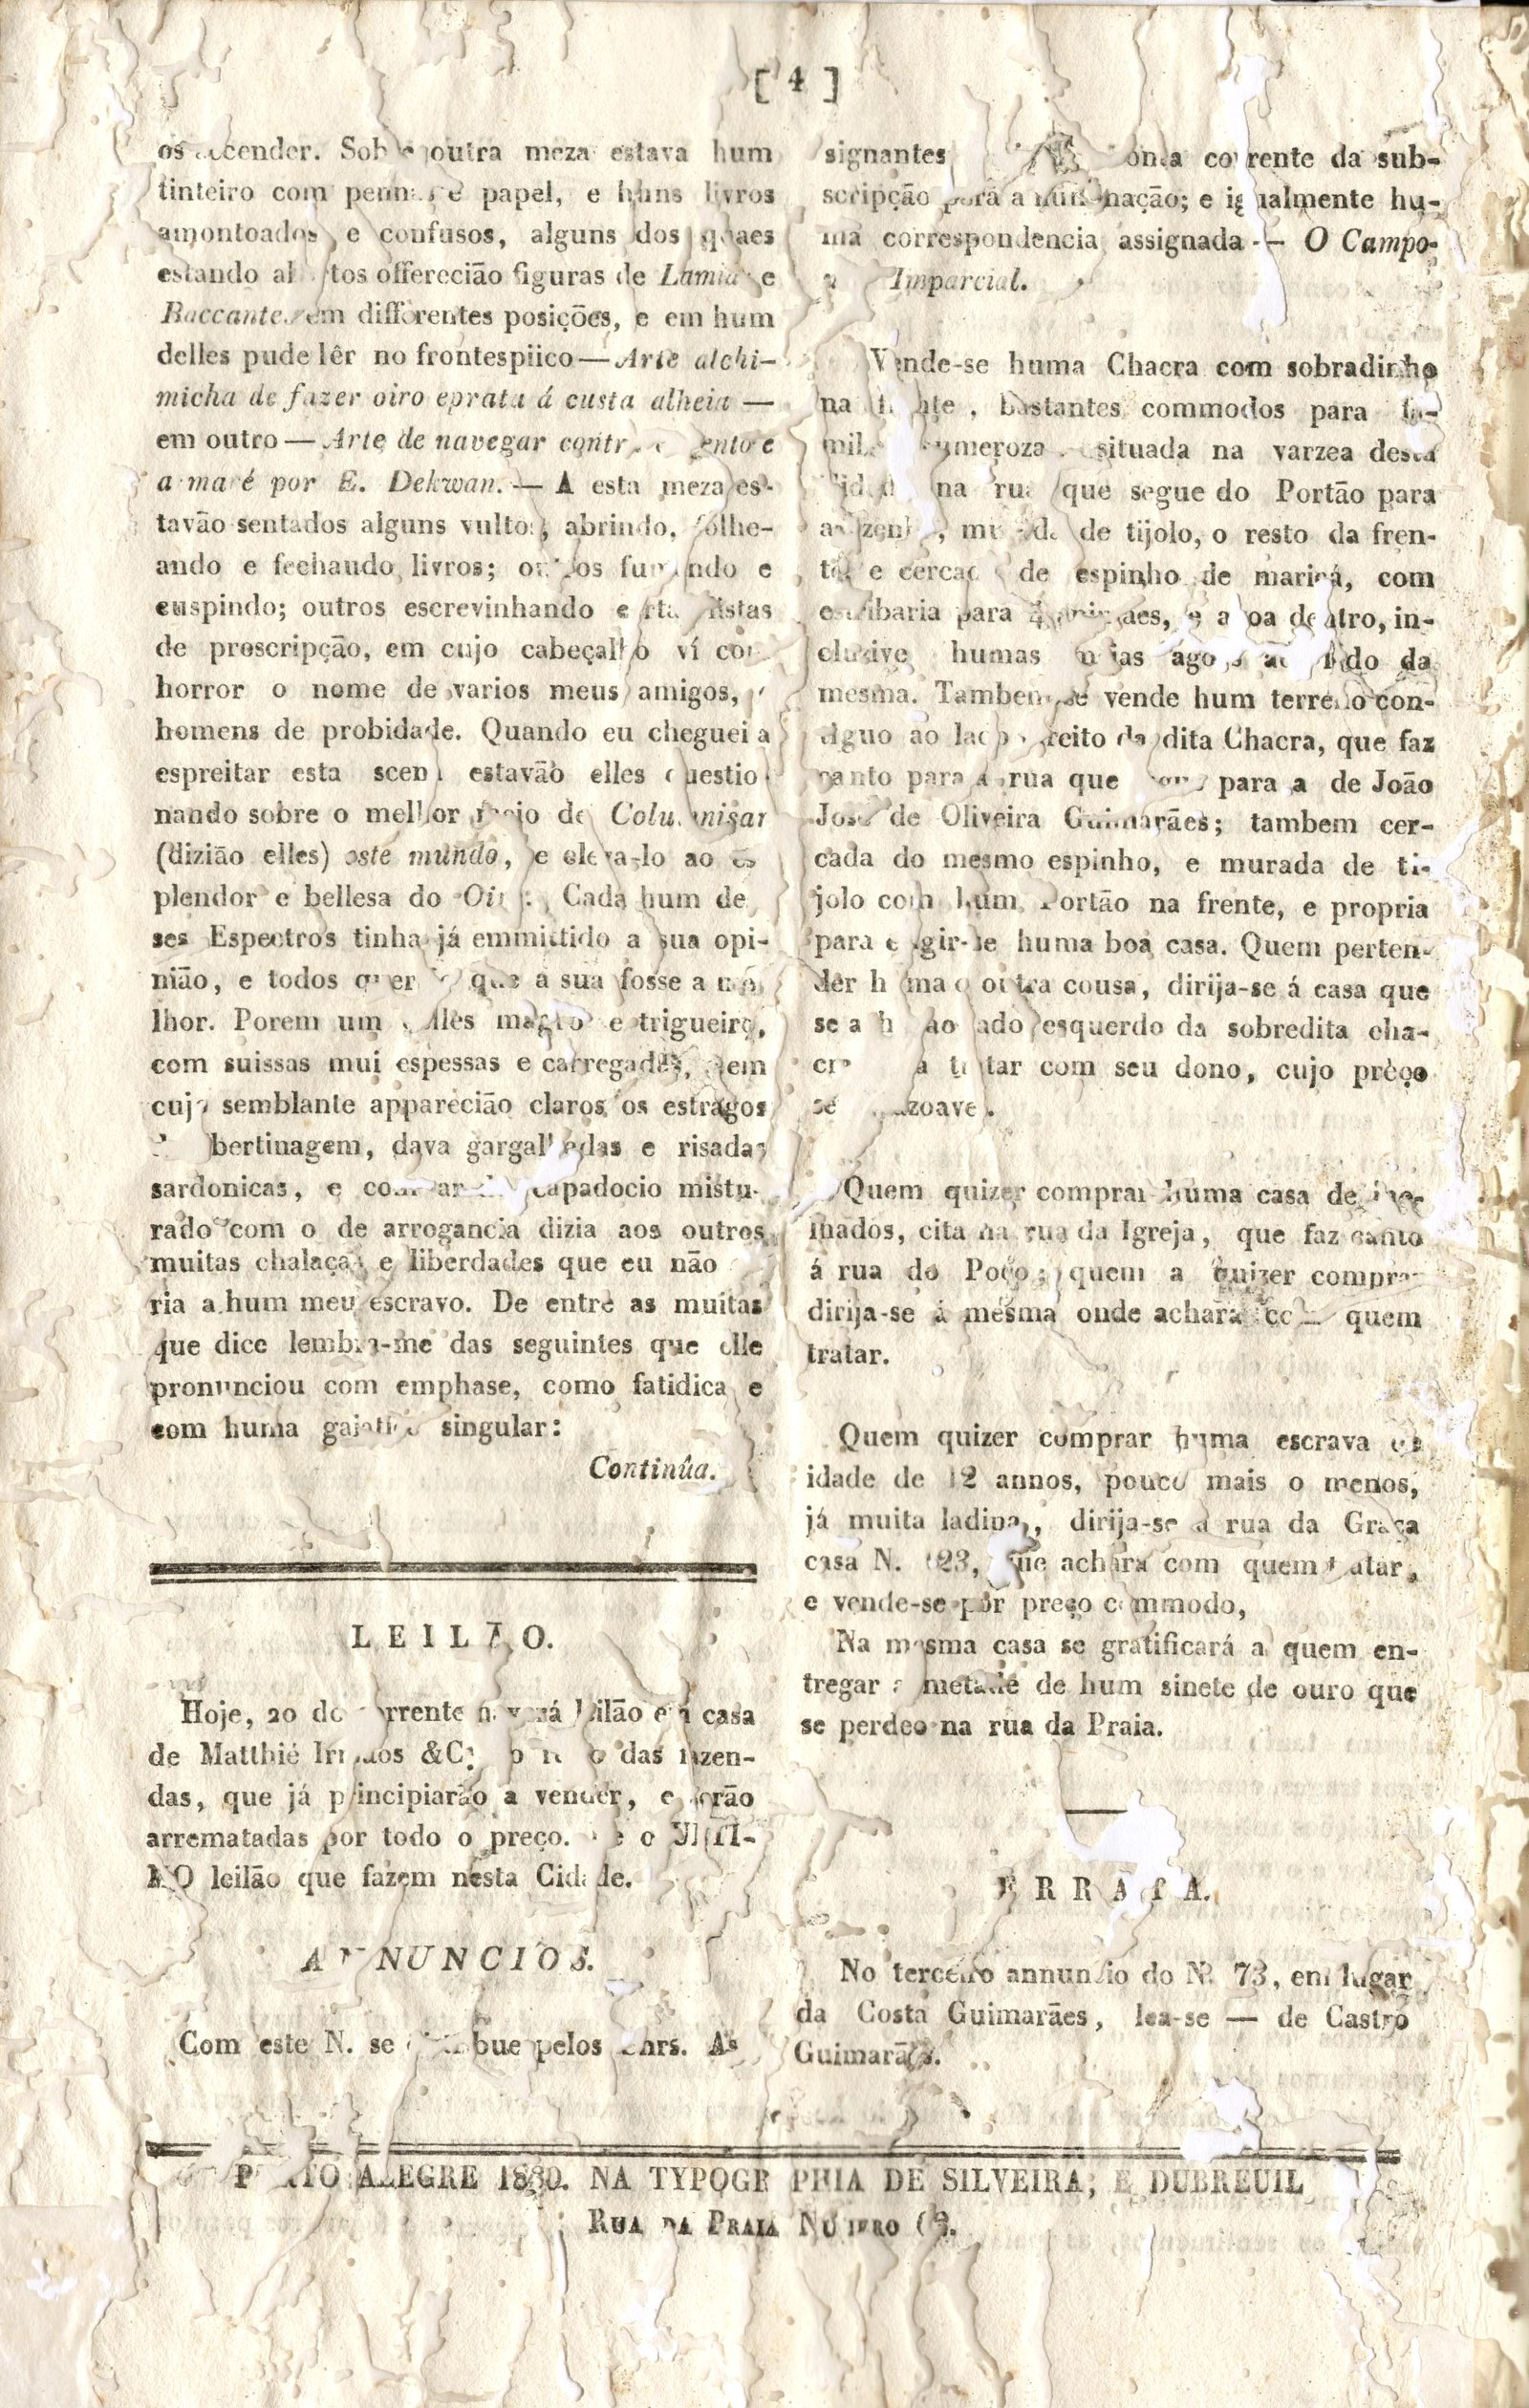 [ 4 ]
os accender. Sobre outra meza estava hum
tinteiro com pennas e papel, e huns livros
amontoados, e confusos, alguns dos quaes
estando abertos offerecião figuras de Lamias e
Baccantes em differentes posições, e em hum
delles pude lêr no frontespiico—Arte alchi-
micha de fazer oiro eprata á custa alheia —
em outro — Arte de navegar contra o vento e
a maré por E. Dekwan. — A esta meza es-
tavão sentados alguns vultos, abrindo, folhe-
ando e fechando livros; outros fumando e
cuspindo; outros escrevinhando certas listas
de proscripção, em cujo cabeçalho ví com
horror o nome de varios meus amigos,
homens de probidade. Quando eu cheguei a
espreitar esta scena estavão elles questio
nando sobre o melhor meio de Columnisar
(dizião elles) este mundo, e eleva-lo ao es
plendor e bellesa do Cada hum de
ses Espectros tinha já emmittido a sua opi-
nião, e todos querião que a sua fosse a me
lhor. Porem um delles magro e trigueiro,
com suissas mui espessas e carregadas, em
cujo semblante apparecião claros os estragos
bertinagem, dava gargalhadas e risadas
sardonicas, e com ar de capadocio mistu-
rado com o de arrogancia dizia aos outros
muitas chalaças e liberdades que eu não
ria a hum meu escravo. De entre as muitas
que dice lembra-me das seguintes que elle
pronunciou com emphase, como fatidica e
com huma singular:
Continûa.
LEILÃO.
Hoje, 20 do corrente haverá leilão em casa
de Matthié Irmãos &C. o resto das fazen-
das, que já principiarão a vender, e serão
arrematadas por todo o preço. he o ULTI-
MO leilão que fazem nesta Cidade.
ANNUNCIOS.
Com este N. se distribue pelos Snrs. As
signantes conta corrente da sub-
scripção para a e igualmente hu-
ma correspondencia assignada — O Campo-
Imparcial.
Vende-se huma Chacra com sobradinho
na frente, bastantes commodos para fa-
milia numeroza situada na varzea desta
Cidade na rua que segue do Portão para
a azenha, murada de tijolo, o resto da fren-
te e cercada de espinho de maricá, com
estribaria para 4 animaes, e agoa dentro, in-
clusive humas ágoa ao lado da
mesma. Tambem se vende hum terreno con-
tiguo ao lado direito da dita Chacra, que faz
canto para a rua que segue para a de João
José de Oliveira Guimarães; tambem cer-
cada do mesmo espinho, e murada de ti-
jolo com hum Portão na frente, e propria
para erigir-se huma boa casa. Quem perten-
der huma ou outra cousa, dirija-se á casa que
se acha ao lado esquerdo da sobredita cha-
cra a tratar com seu dono, cujo preço
será razoavel.
Quem quizer comprar huma casa de
lhados, cita na rua da Igreja, que faz canto
á rua do Poço; quem a quizer comprar
dirija-se á mesma onde achara com quem
tratar.
Quem quizer comprar huma escrava de
idade de 12 annos, pouco mais o menos,
já muita ladina, dirija-se a rua da Graça
casa N. que achara com quem tratar,
e vende-se por preço commodo,
Na mesma casa se gratificará a quem en-
tregar a metade de hum sinete de ouro que
se perdeo na rua da Praia.
ERRATA.
No terceiro annuncio do N. 73, em lugar
da Costa Guimarães, lea-se — de Castro
Guimarães.
PORTO ALEGRE 1830. NA TYPOGRAPHIA DE SILVEIRA, E DUBREUIL
RUA DA PRAIA NUMERO